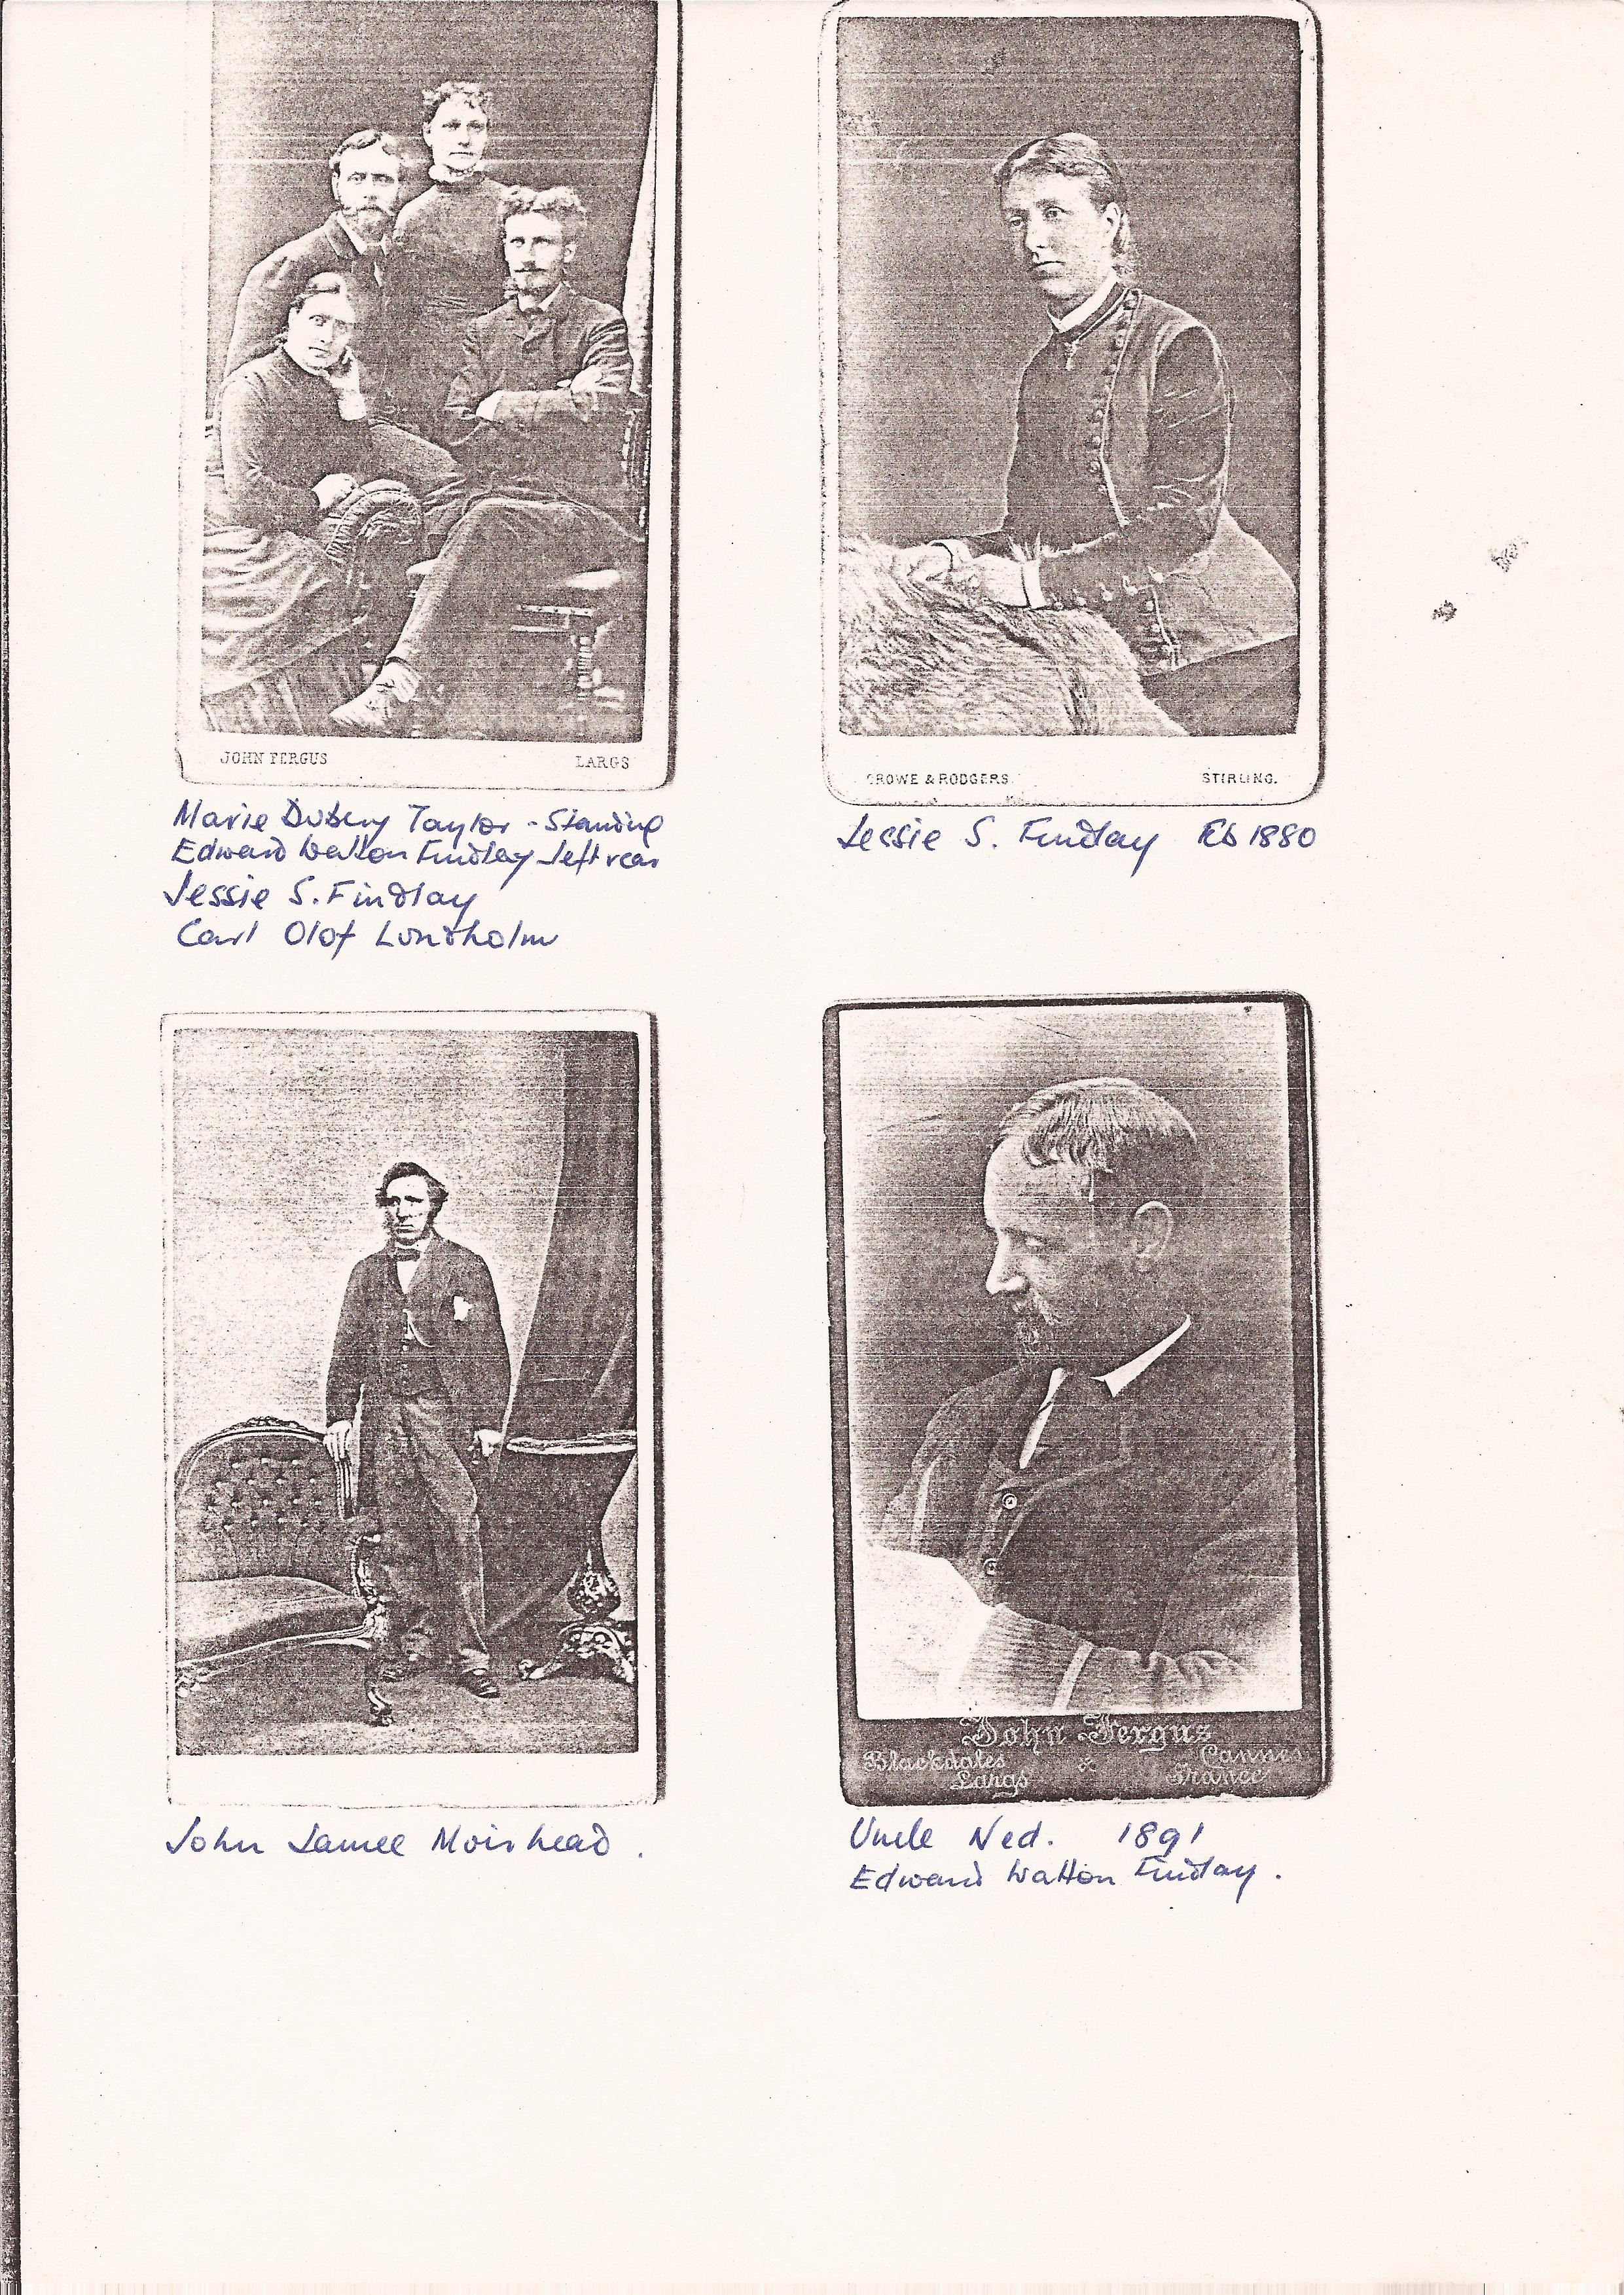 JOHN FERGUS LARGS
Marie Taylor - Standing
Edward Walton Findlay - left rear
Jessie S. Findlay
Carl Olof Lundholm
CROWE & RODGERS. STIRLING.
Jessie S. Findlay Feb 1880
John James Moirhead.
John Fergus
Blackdales Largs & Cannes France
Uncle Ned. 1891
Edward Walton Findlay.